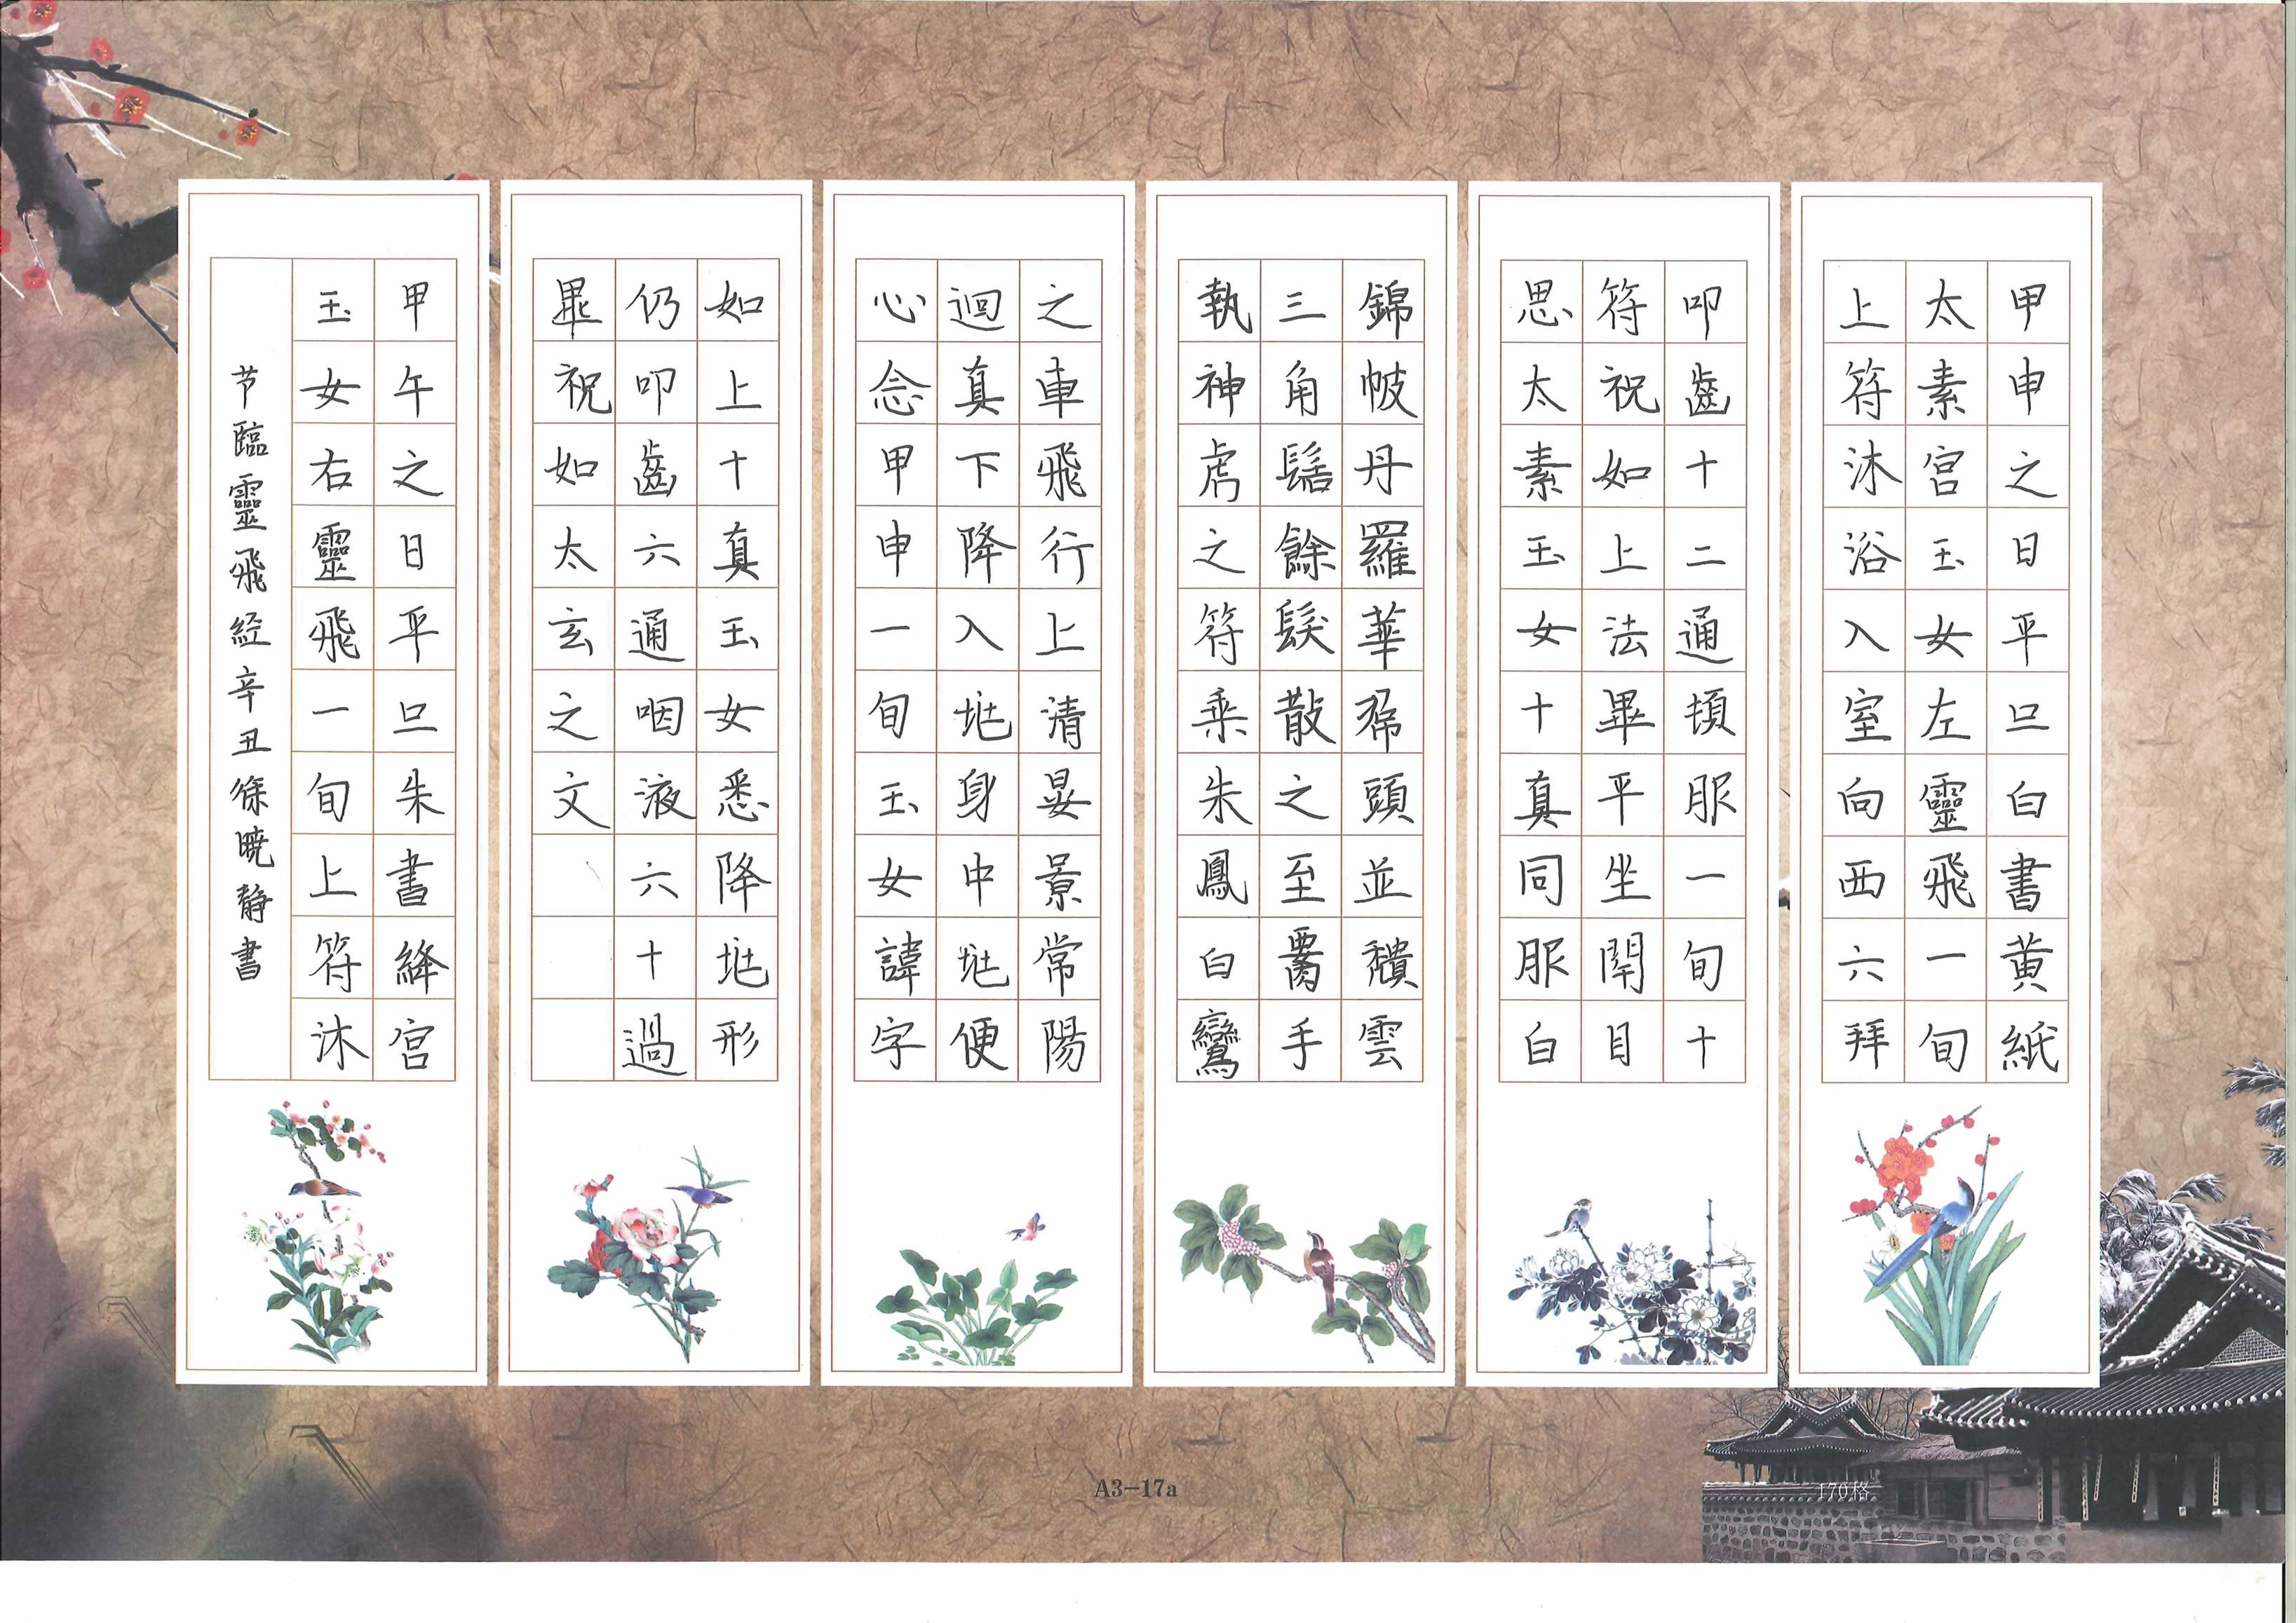 甲申之日平旦白書黄紙
太素宫玉女左靈飛一旬
上符沐浴入室向西六拜
叩齒十二通頓服一旬十
符祝如上法畢平坐閉目
思太素玉女十真同服白
錦帔丹羅華帬頭並穨雲
三角髻餘髮散之至署手
執神虎之符乗朱鳳白鸞
之車飛行上清晏景常陽
迴真下降入兆身中兆便
心念甲申一旬玉女諱字
如上十真玉女悉降兆形
仍叩齒六通咽液六十過
畢祝如太玄之文
甲午之日平旦朱書絳宫
玉女右靈飛一旬上符沐
节臨靈飛経辛丑徐曉静書
A3-17a
170格